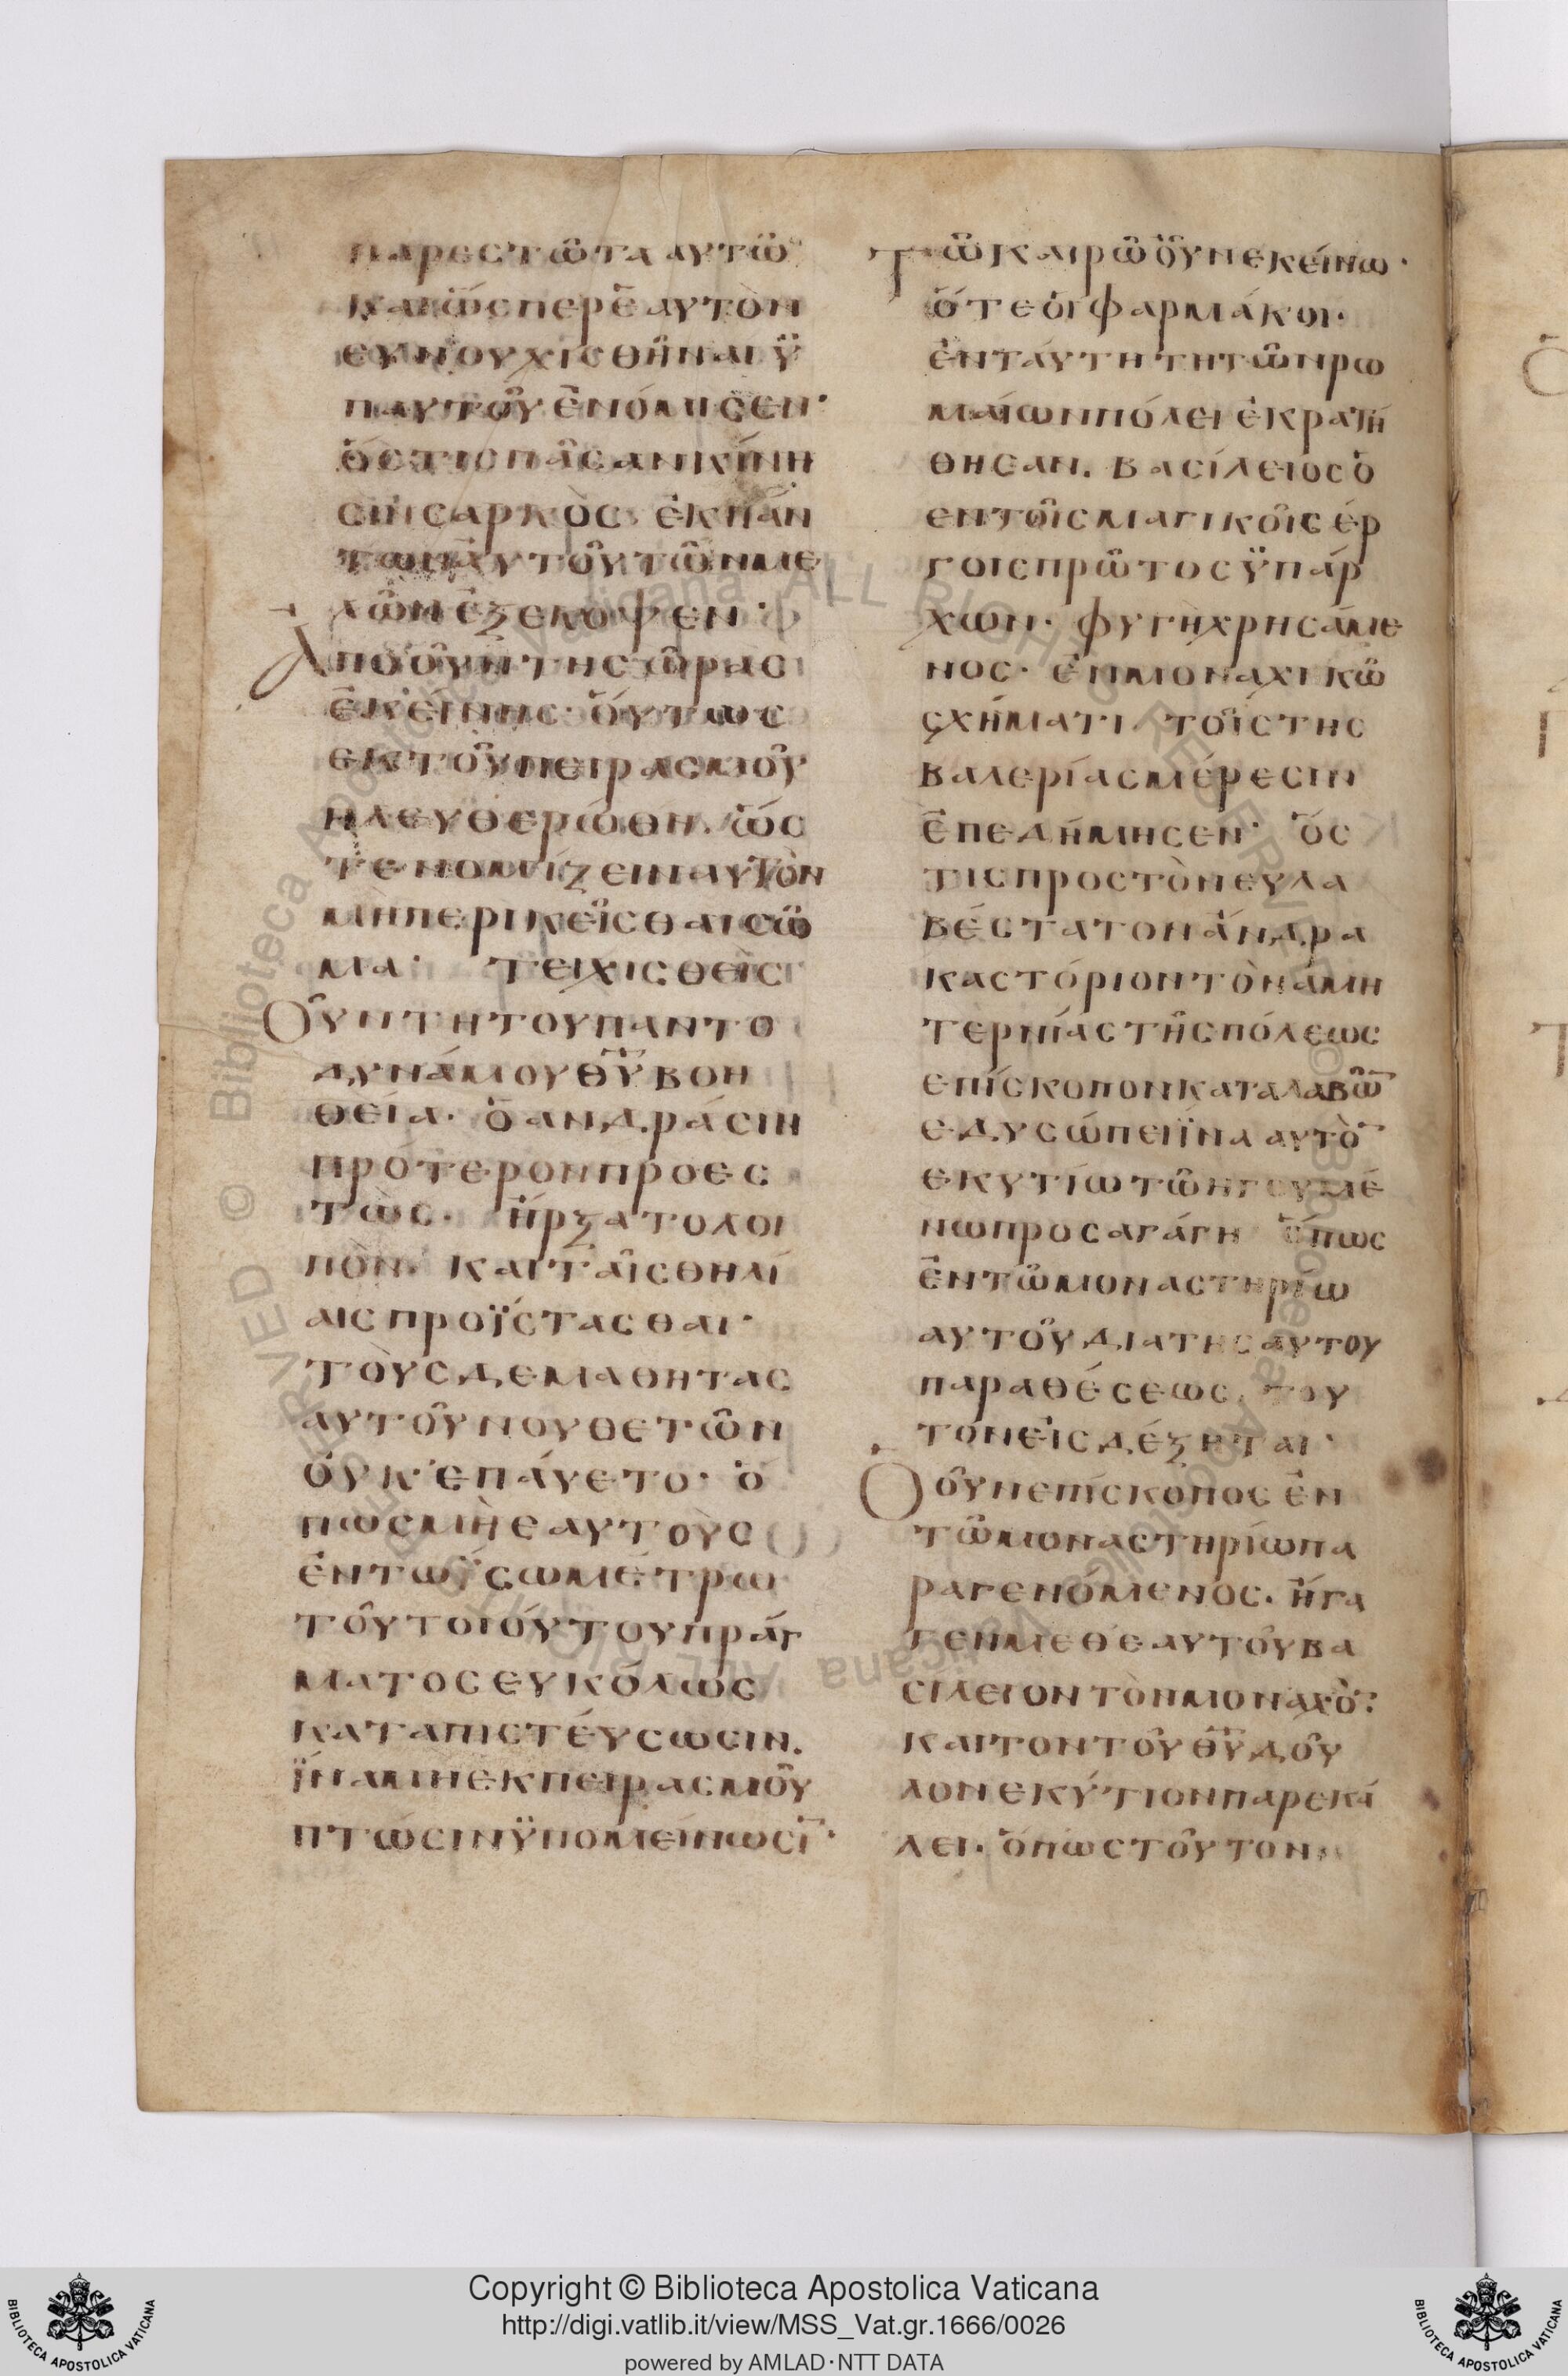 παρεστῶτα αυτῶ
καὶ ὥσπερ ἐ̅ αυτὸν
ευνουχισθῆναι ϋ
π αυτοῦ ἐνόμισεν·
ὅστις πᾶσαν κίνη
σιν σαρκὸς ἐκ πάν
των αυτοῦ τῶν με
λῶν ἐξέκοψεν·
Απο οῦν της ὥρας
ἐκείνης· ὅυτως
εκ τοῦ πειρασμοῦ
ηλευθερώθη. ὥς
τε νομίζειν αυτὸν
μὴ περικεῖσθαι σῶ
μα· τειχισθεὶς
Οῦν τη του παντο
δυνάμου θ̅υ̅ βοη
θεία· ὁ ανδράσιν
πρότερον προες
τὼς· ἤρξατο λοι
πὸν· και ταῖς θηλί
αις προΐστασθαι·
τοὺς δε μαθητας
αυτοῦ νουθετῶν
οὐκ επάυετο· ὅ
πως μὴ εαυτοὺς
ἐν τω ἴσω μέτρω
τοῦ τοιούτου πράγ
ματος ευκόλως
καταπιστέυσωσιν.
ἵνα μη εκ πειρασμοῦ
πτώσιν ϋπομείνωσῑ·
Τῶ καιρῶ οῦν εκείνω·
ὅτε ὁι φαρμάκοι·
ἐν τάυτη τη τῶν ρω
μαίων πόλει ἐκρατή
θησαν. Βασίλειος ὁ
εν τοῖς μαγικοῖς έρ
γοις πρῶτος ϋπάρ
χων· φυγὴ χρησάμε
νος· ἐν μοναχικῶ
σχήματι τοῖς της
βαλερίας μέρεσιν
ἐπεδήμησεν· ὅς
τις προς τὸν ευλα
βέστατον ἄνδρα
καστόριον τὸν ἀμη
τερνίας τῆς πόλεως
επίσκοπον καταλαβῶ̅
εδυσώπει ἵνα αυτὸ̅
εκυτίω τῶ ηγουμέ
νω προσαγάγη ὅπως
ἐν τῶ μοναστηρίω
αυτοῦ δια της αυτου
παραθέσεως. του
τον εἰσδέξηται·
Ὁ οῦν επίσκοπος ἐν
τῶ μοναστηρίω πα
ραγενόμενος. ἤγα
γεν μεθ εαυτοῦ βα
σίλειον τὸν μοναχὸ̅·
και τον τοῦ θ̅υ̅ δοῦ
λον εκύτιον παρεκά
λει. ὅπως τοῦτον
Copyright © Biblioteca Apostolica Vaticana
http://digi.vatlib.it/view/MSS_Vat.gr.1666/0026
powered by AMLAD·NTT DATA
BIBLIOTECA APOSTOLICA VATICANA
BIBLIOTECA APOSTOLICA VATICANA